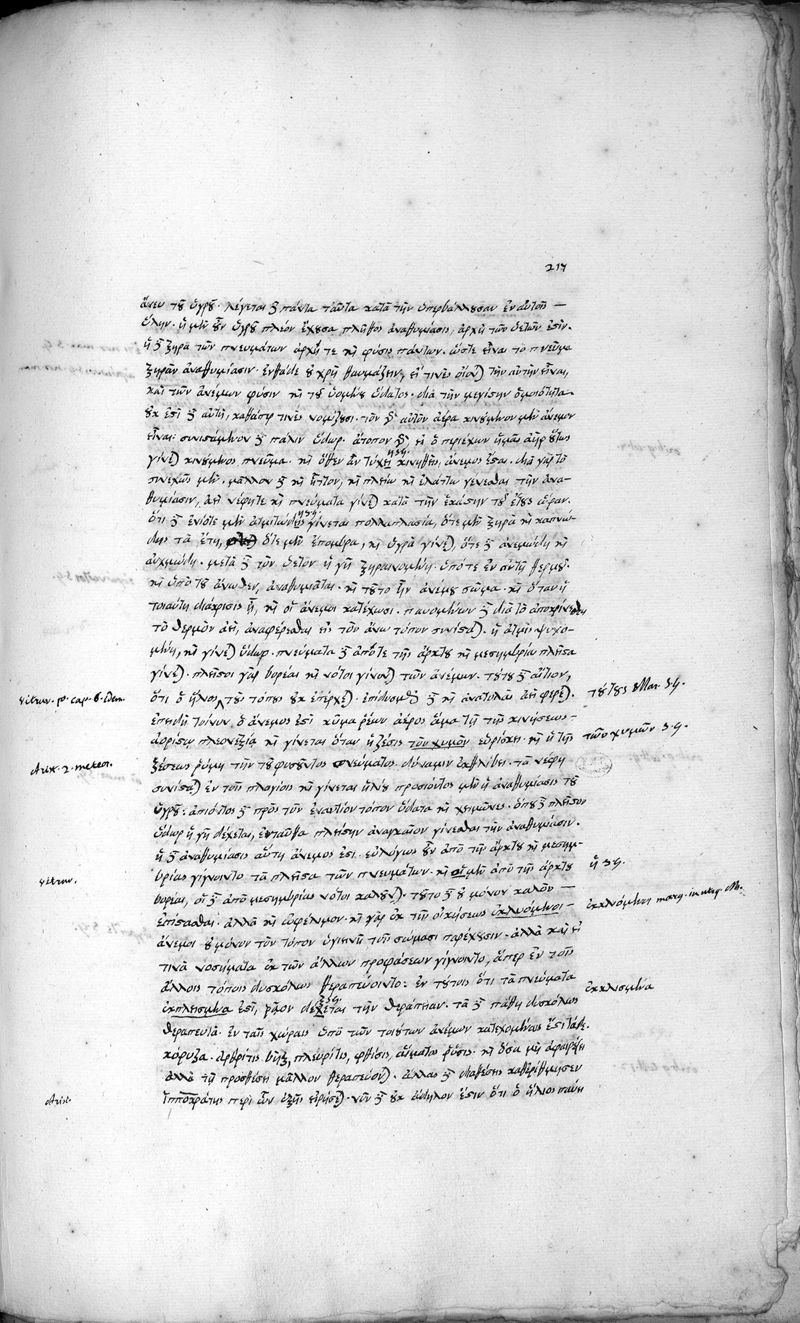 217
ἄνευ τοῦ ὑγροῦ. λέγεται δὲ πάντα ταῦτα κατὰ τὴν ὑπερβάλλουσαν ἐν αὐτοῖς
ὕλην. ἡ μὲν οὖν ὑγροῦ πλέον ἔχουσα πλῆθος ἀναθυμίασις, ἀρχὴ τῶν ὑετῶν ἐστίν.
ἡ δὲ ξηρὰ τῶν πνευμάτων ἀρχή τε καὶ φύσις πάντων. ὥστε εἶναι τὸ πνεῦμα
ξηρὰν ἀναθυμίασιν. ἐνθάδε οὐ χρὴ θαυμάζειν, εἴ τινες οἴονται τὴν αὐτὴν εἶναι,
καὶ τῶν ἀνέμων φύσιν καὶ τοῦ ὑομένου ὕδατος. διὰ τὴν μεγίστην ὁμοιότητα
οὐκ ἔστι δὲ αὐτὴ, καθάπερ τινὲς νομίζουσι. τὸν γὰρ αὐτὸν ἀέρα κινούμενον μὲν ἄνεμον
εἶναι. συνιστάμενον δὲ πάλιν ὕδωρ. ἄτοπον γὰρ εἰ ὁ περιέχων ἡμᾶς ἀὴρ οὗτος
γίνεται κινούμενος πνεῦμα. καὶ ὅθεν ἂν τύχῃ κινηθεὶς, ἄνεμος ἔσται. διὰ γὰρ τὸ
συνεχῶς μὲν. μᾶλλον δὲ καὶ ἧττον, καὶ πλείω καὶ ἐλάττω γενέσθαι τὴν ἀνα-
θυμίασιν, ἀεὶ νέφη τε καὶ πνεύματα γίνεται κατὰ τὴν ἑκάστην τοῦ ἔτους ὥραν.
ὅτι δὲ ἐνίοτε μὲν ἀτμιτώδης γίνεται πολλαπλασία, ὁτὲ μὲν ξηρὰ καὶ καπνώ-
δης τὰ ἔτη, ὁτὲ μὲν ἔπομβρα, καὶ ὑγρὰ γίνεται, ὁτὲ δὲ ἀνεμώδη καὶ
αὐχμώδη. μετὰ δὲ τὸν ὑετὸν ἡ γῆ ξηραινομένη ὑπό τε ἐν αὐτῇ θερμοῦ
καὶ ὑπὸ τοῦ ἄνωθεν, ἀναθυμιᾶται. καὶ τοῦτο ἦν ἀνέμου σῶμα. καὶ ὅταν ἡ
τοιαύτη διάκρισις ᾖ, καὶ οἱ ἄνεμοι κατέχωσι. παυομένων δὲ διὰ τὸ ἀποκρίνεσθαι
τὸ θερμὸν ἀεὶ, ἀναφέρεσθαι εἰς τὸν ἄνω τόπον συνίσταται. ἡ ἀτμὶς ψυχο-
μένη, καὶ γίνεται ὕδωρ. πνεύματα δὲ ἀπό τε τῆς ἄρκτου καὶ μεσημβρίας πλεῖστα
γίνεται. πλεῖστοι γὰρ βορέαι καὶ νότοι γίνονται τῶν ἀνέμων. τούτου δὲ αἴτιον,
ὅτι ὁ ἥλιος τοὺς τόπους οὐκ ἐπέρχεται. ἐπὶ δυσμὰς δὲ καὶ ἀνατολὰς ἀεὶ φέρεται.
ἐπειδὴ τοίνυν ὁ ἄνεμος ἐστὶ κῦμα ῥέων ἀέρος ἅμα τῇ τῆς κινήσεως
ἀορίστῳ πλεονεξίᾳ καὶ γίνεται ὅταν ἡ ζέσις τὸν χυμὸν εὑρίσκει. καὶ ἡ τῆς
ζέσεως ῥύμη τὴν τοῦ φυσῶντος πνεύματος δύναμιν ἐκθλίβει. τὰ νέφη
συνίσταται ἐν τοῖς πλαγίοις καὶ γίνεται ἡλίου προσιόντος μὲν ἡ ἀναθυμίασις τοῦ
ὑγροῦ. ἀπιόντος δὲ πρὸς τὸν ἐναντίον τόπον ὕδατα καὶ χειμῶνες. ὅπου δὲ πλεῖστον
ὕδωρ ἡ γῆ δέχεται, ἐνταῦθα πλείστην ἀναγκαῖον γίνεσθαι τὴν ἀναθυμίασιν.
ἡ δὲ ἀναθυμίασις αὕτη ἄνεμός ἐστι. εὐλόγως οὖν ἀπὸ τῆς ἄρκτου καὶ μεσημ-
βρίας γίγνοιντο τὰ πλεῖστα τῶν πνευμάτων. καὶ οἱ μὲν ἀπὸ τῆς ἄρκτου
βορέαι, οἱ δὲ ἀπὸ μεσημβρίας νότοι καλοῦνται. τοῦτο δὲ οὐ μόνον καλὸν
ἐπίστασθαι. ἀλλὰ καὶ ὠφέλιμον. καὶ γὰρ ἐκ τῆς οἰκήσεως ἐκλινόμενοι
ἄνεμοι οὐ μόνον τὸν τόπον ὑγιεινὸν τοῖς σώμασι παρέχουσιν. ἀλλὰ καὶ εἴ
τινα νοσήματα ἐκ τῶν ἄλλων προφάσεων γίγνοιντο, ἅπερ ἐν τοῖς
ἄλλοις τόποις δυσκόλως θεραπεύοιντο. ἐν τούτοις ὅτι τὰ πνεύματα
ἐκπλεισμένα ἐστὶ, ῥᾷον δέχεται τὴν θεραπείαν. τὰ δὲ πάθη δυσκόλως
θεραπευτὰ ἐν ταῖς χώραις ὑπὸ τῶν τοιούτων ἀνέμων κατεχομέναις ἐστὶ τάδε.
κόρυζα. ἀρθρῖτις βὴξ, πλευρῖτις, φθίσις, αἵματος ῥύσις. καὶ ὅσα μὴ ἀφαιρέσει
ἀλλὰ τῇ προσθέσει μᾶλλον θεραπεύονται. ἄλλας δὲ διαθέσεις καθηρίθμησεν
Ἱπποκράτης περὶ ὧν ἑξῆς εἰρήσεται. νῦν δὲ οὐκ ἄδηλόν ἐστιν ὅτι ὁ ἥλιος παύει
vitruv. p. cap. 6. idem.
Arist. 2. meteor.
vitruv.
Arist.
τούτους Mar. 34.
τῶν χυμῶν 34.
ἡ 34.
ἐκκλινόμενοι marg.
ἐκκλισμένα